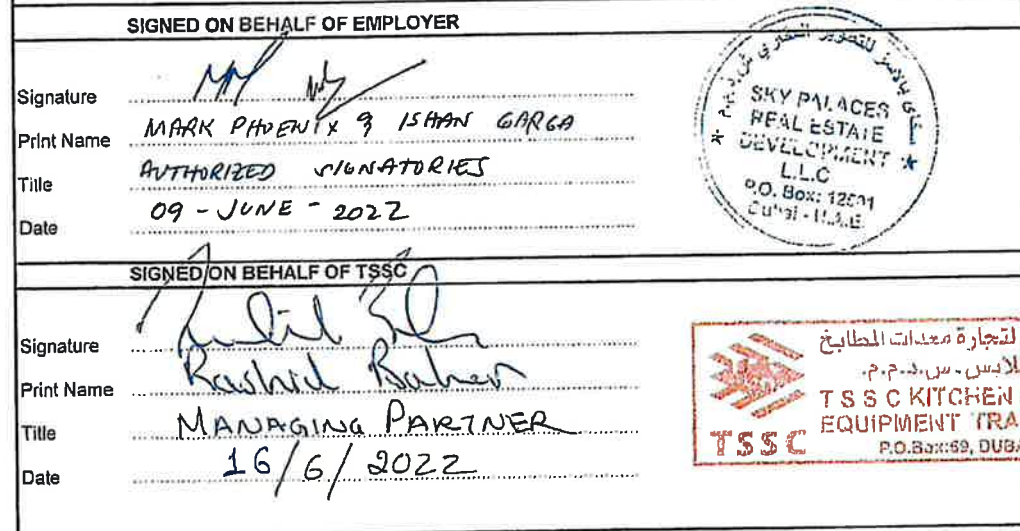 SIGNED ON BEHALF OF EMPLOYER
Signature
Print Name MARK PHOENIX & ISHAN GARGA
Title AUTHORIZED SIGNATORIES
Date 09 - JUNE - 2022
SKY PALACES
REAL ESTATE
DEVELOPMENT
L.L.C
P.O. Box:
Dubai - U.A.E.
SIGNED ON BEHALF OF TSSC
Signature
Print Name Rashid
Title MANAGING PARTNER
Date 16/6/2022
لتجارة معدات المطابخ
ش.ذ.م.م.
T S S C KITCHEN
EQUIPMENT TRA
TSSC
P.O.Box:69, DUBA